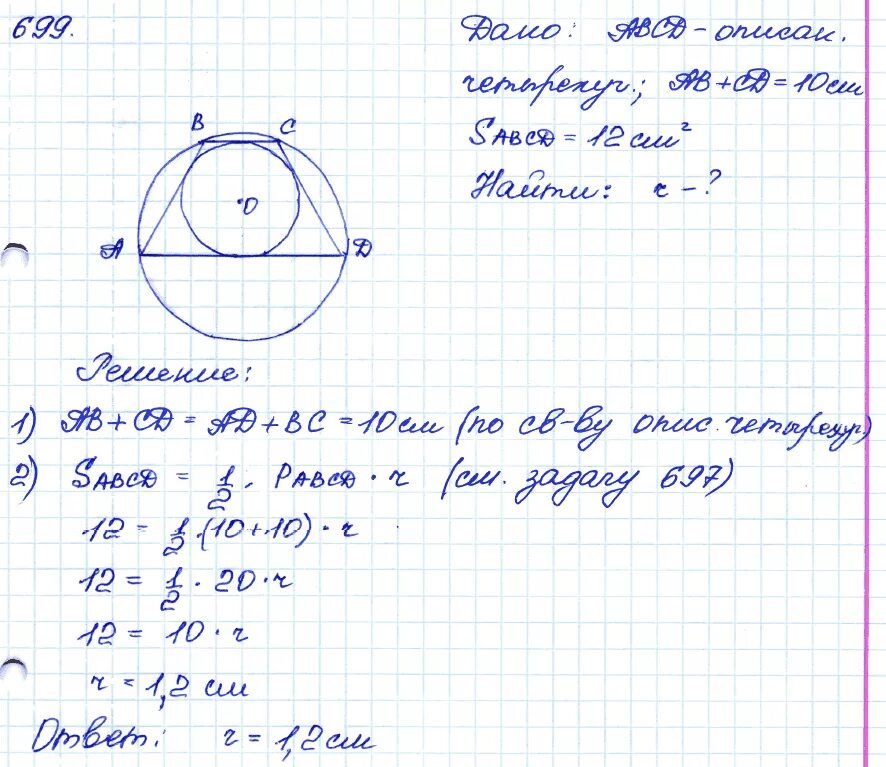 699.
Дано: ABCD - описан.
четырехуг.; AB + CD = 10 см
SABCD = 12 см²
Найти: r - ?
B C
O
A D
Решение:
1) AB + CD = AD + BC = 10 см (по св-ву опис. четырехуг.)
2) SABCD = 1/2 · PABCD · r (см. задачу 697)
12 = 1/2 · (10 + 10) · r
12 = 1/2 · 20 · r
12 = 10 · r
r = 1,2 см
Ответ: r = 1,2 см